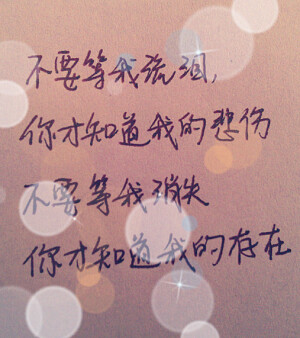 不要等我流泪，
你才知道我的悲伤
不要等我消失
你才知道我的存在